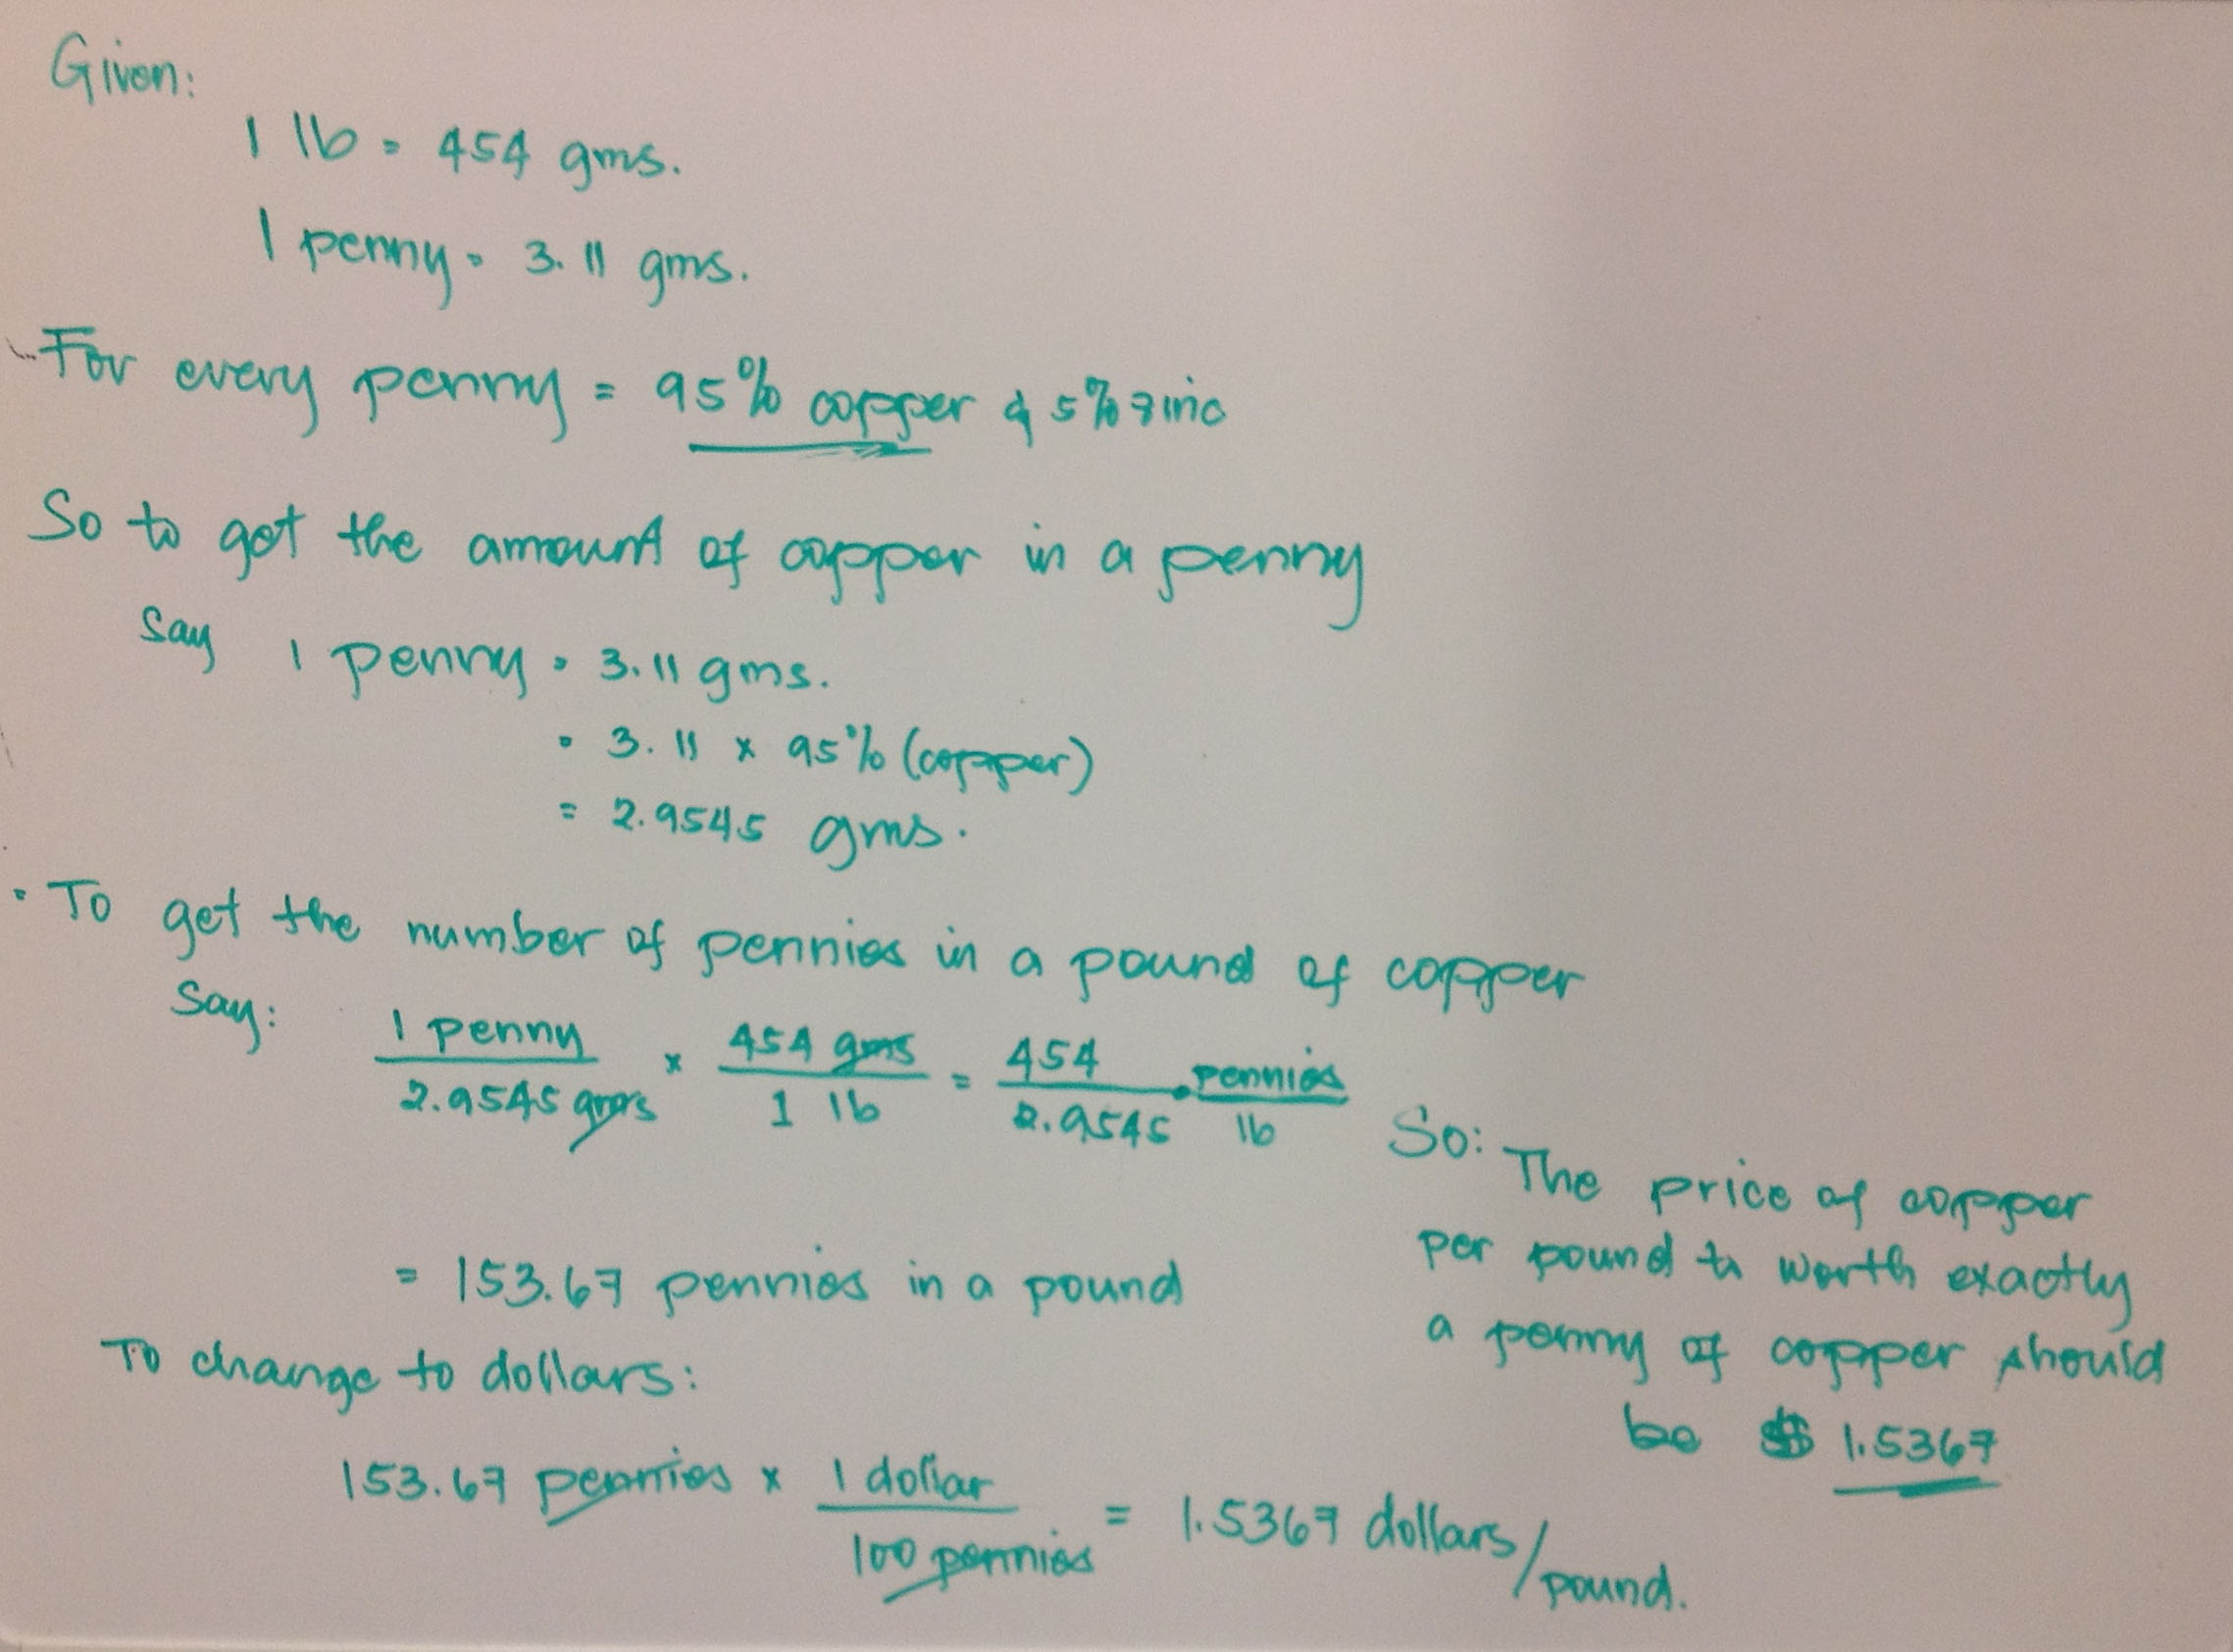 Given:
1 lb = 454 gms.
1 penny = 3.11 gms.
For every penny = 95% copper & 5% zinc
So to get the amount of copper in a penny
Say 1 penny = 3.11 gms.
= 3.11 x 95% (copper)
= 2.9545 gms.
To get the number of pennies in a pound of copper
Say: 1 penny / 2.9545 gms x 454 gms / 1 lb = 454 / 2.9545 . pennies / lb
= 153.67 pennies in a pound
To change to dollars:
153.67 pennies x 1 dollar / 100 pennies = 1.5367 dollars/pound.
So: The price of copper
per pound to worth exactly
a penny of copper should
be $ 1.5367